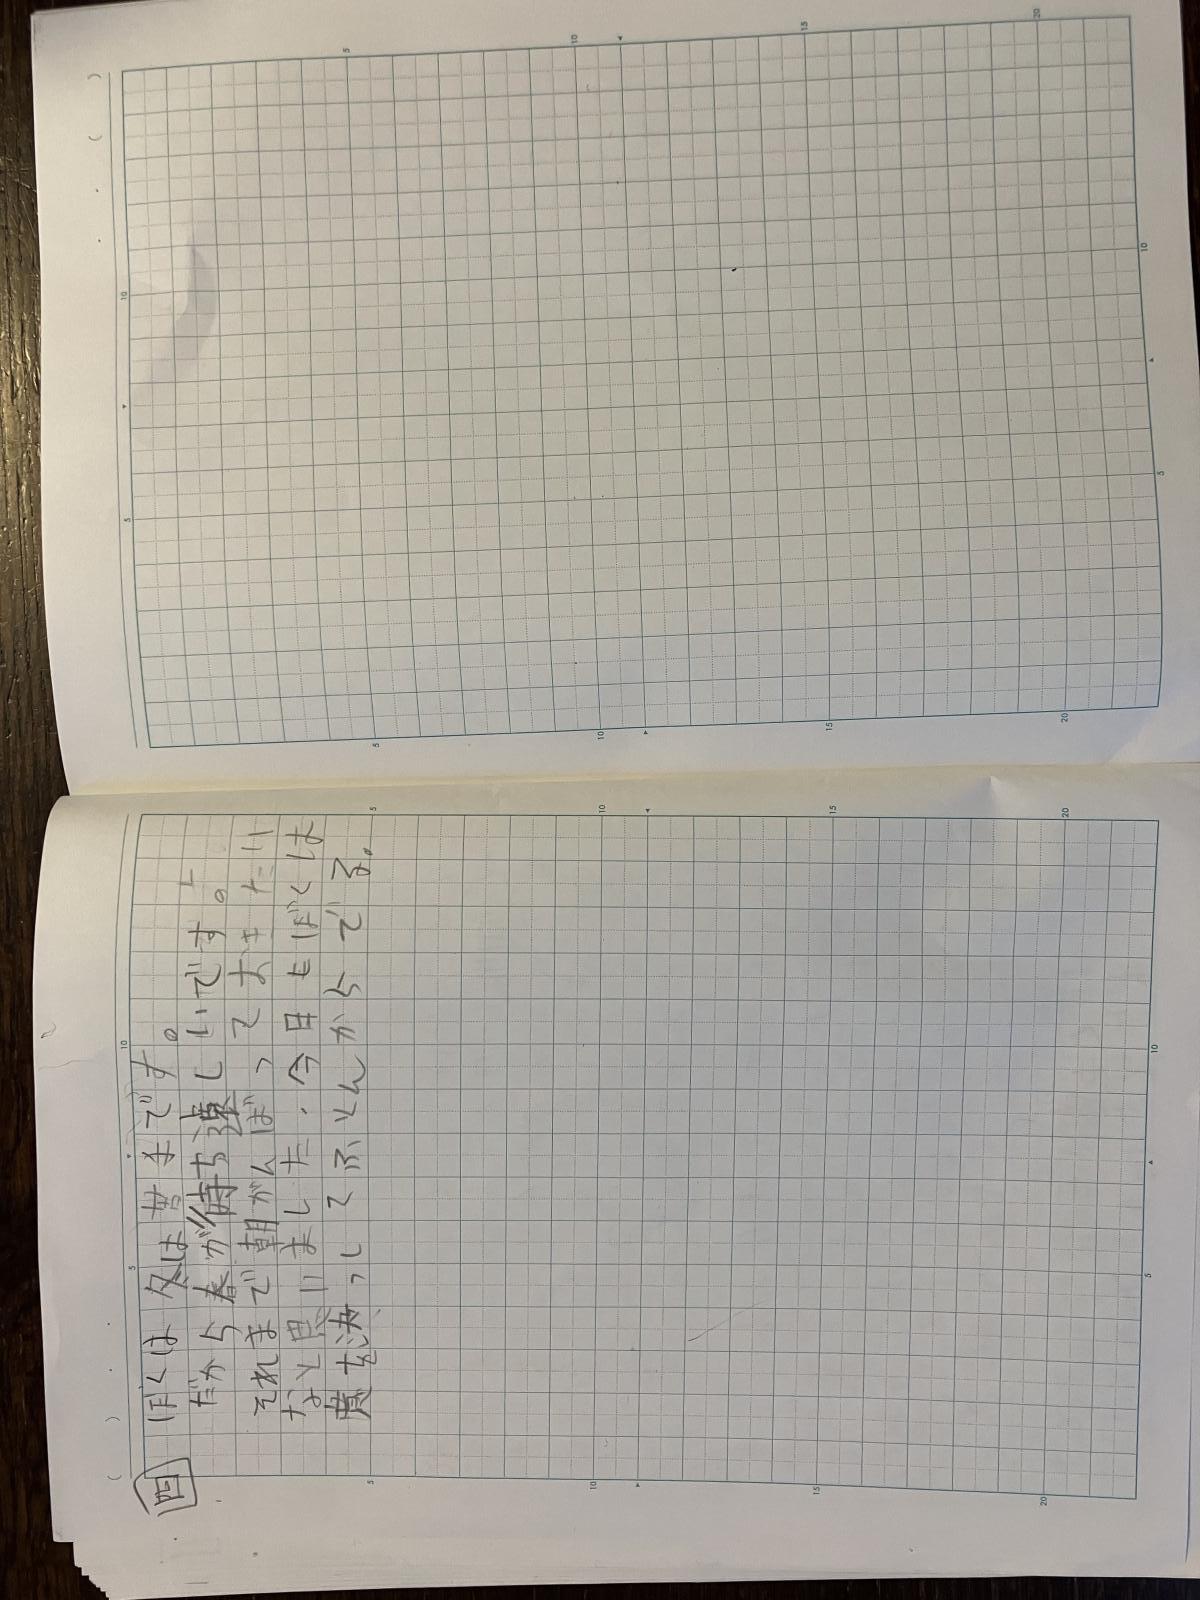 四
ぼくは冬は苦手です。
だから春が待ち遠しいです。
それまで朝がんばっておきたい
なと思いました.今日もぼくは
意を決っしてふとんからでる.